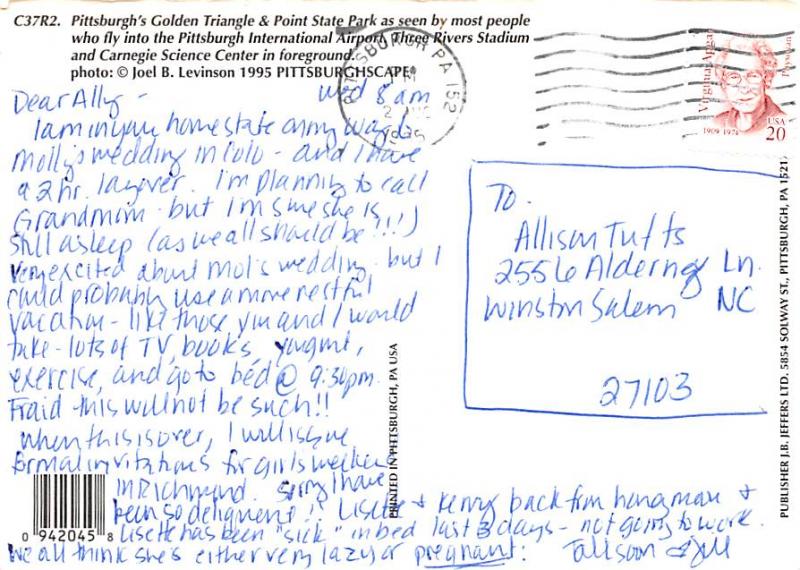 C37R2. Pittsburgh's Golden Triangle & Point State Park as seen by most people
who fly into the Pittsburgh International Airport. Three Rivers Stadium
and Carnegie Science Center in foreground.
photo: © Joel B. Levinson 1995 PITTSBURGHSCAPE®
PITTSBURGH PA 152
1995
Virginia Apgar
Physician
1909-1974
USA
20
Dear Ally - Wed 8 am
I am in your home state on my way to
Molly's wedding in Colo - and I have
a 2 hr. layover. I'm planning to call
Grandmom - but I'm sure she is
still asleep (as we all should be!!!)
Very excited about Mol's wedding - but I
could probably use a more restful
vacation - like those you and I would
take - lots of TV, books, yogurt,
exercise, and go to bed @ 9:30pm.
Fraid this will not be such!!
When this is over, I will issue
formal invitations for girls weekend
in Richmond. Sorry I have
been so delinquent!! Lisette & Kenny back from honeymoon &
Lisette has been "sick" in bed last 3 days - not going to work.
We all think she's either very lazy or pregnant! Talk soon Jill
To.
Allison Tufts
2556 Alderney Ln.
Winston Salem NC
27103
PRINTED IN PITTSBURGH, PA USA
PUBLISHER J.B. JEFFERS LTD. 5854 SOLWAY ST., PITTSBURGH, PA 15217
0 942045 8